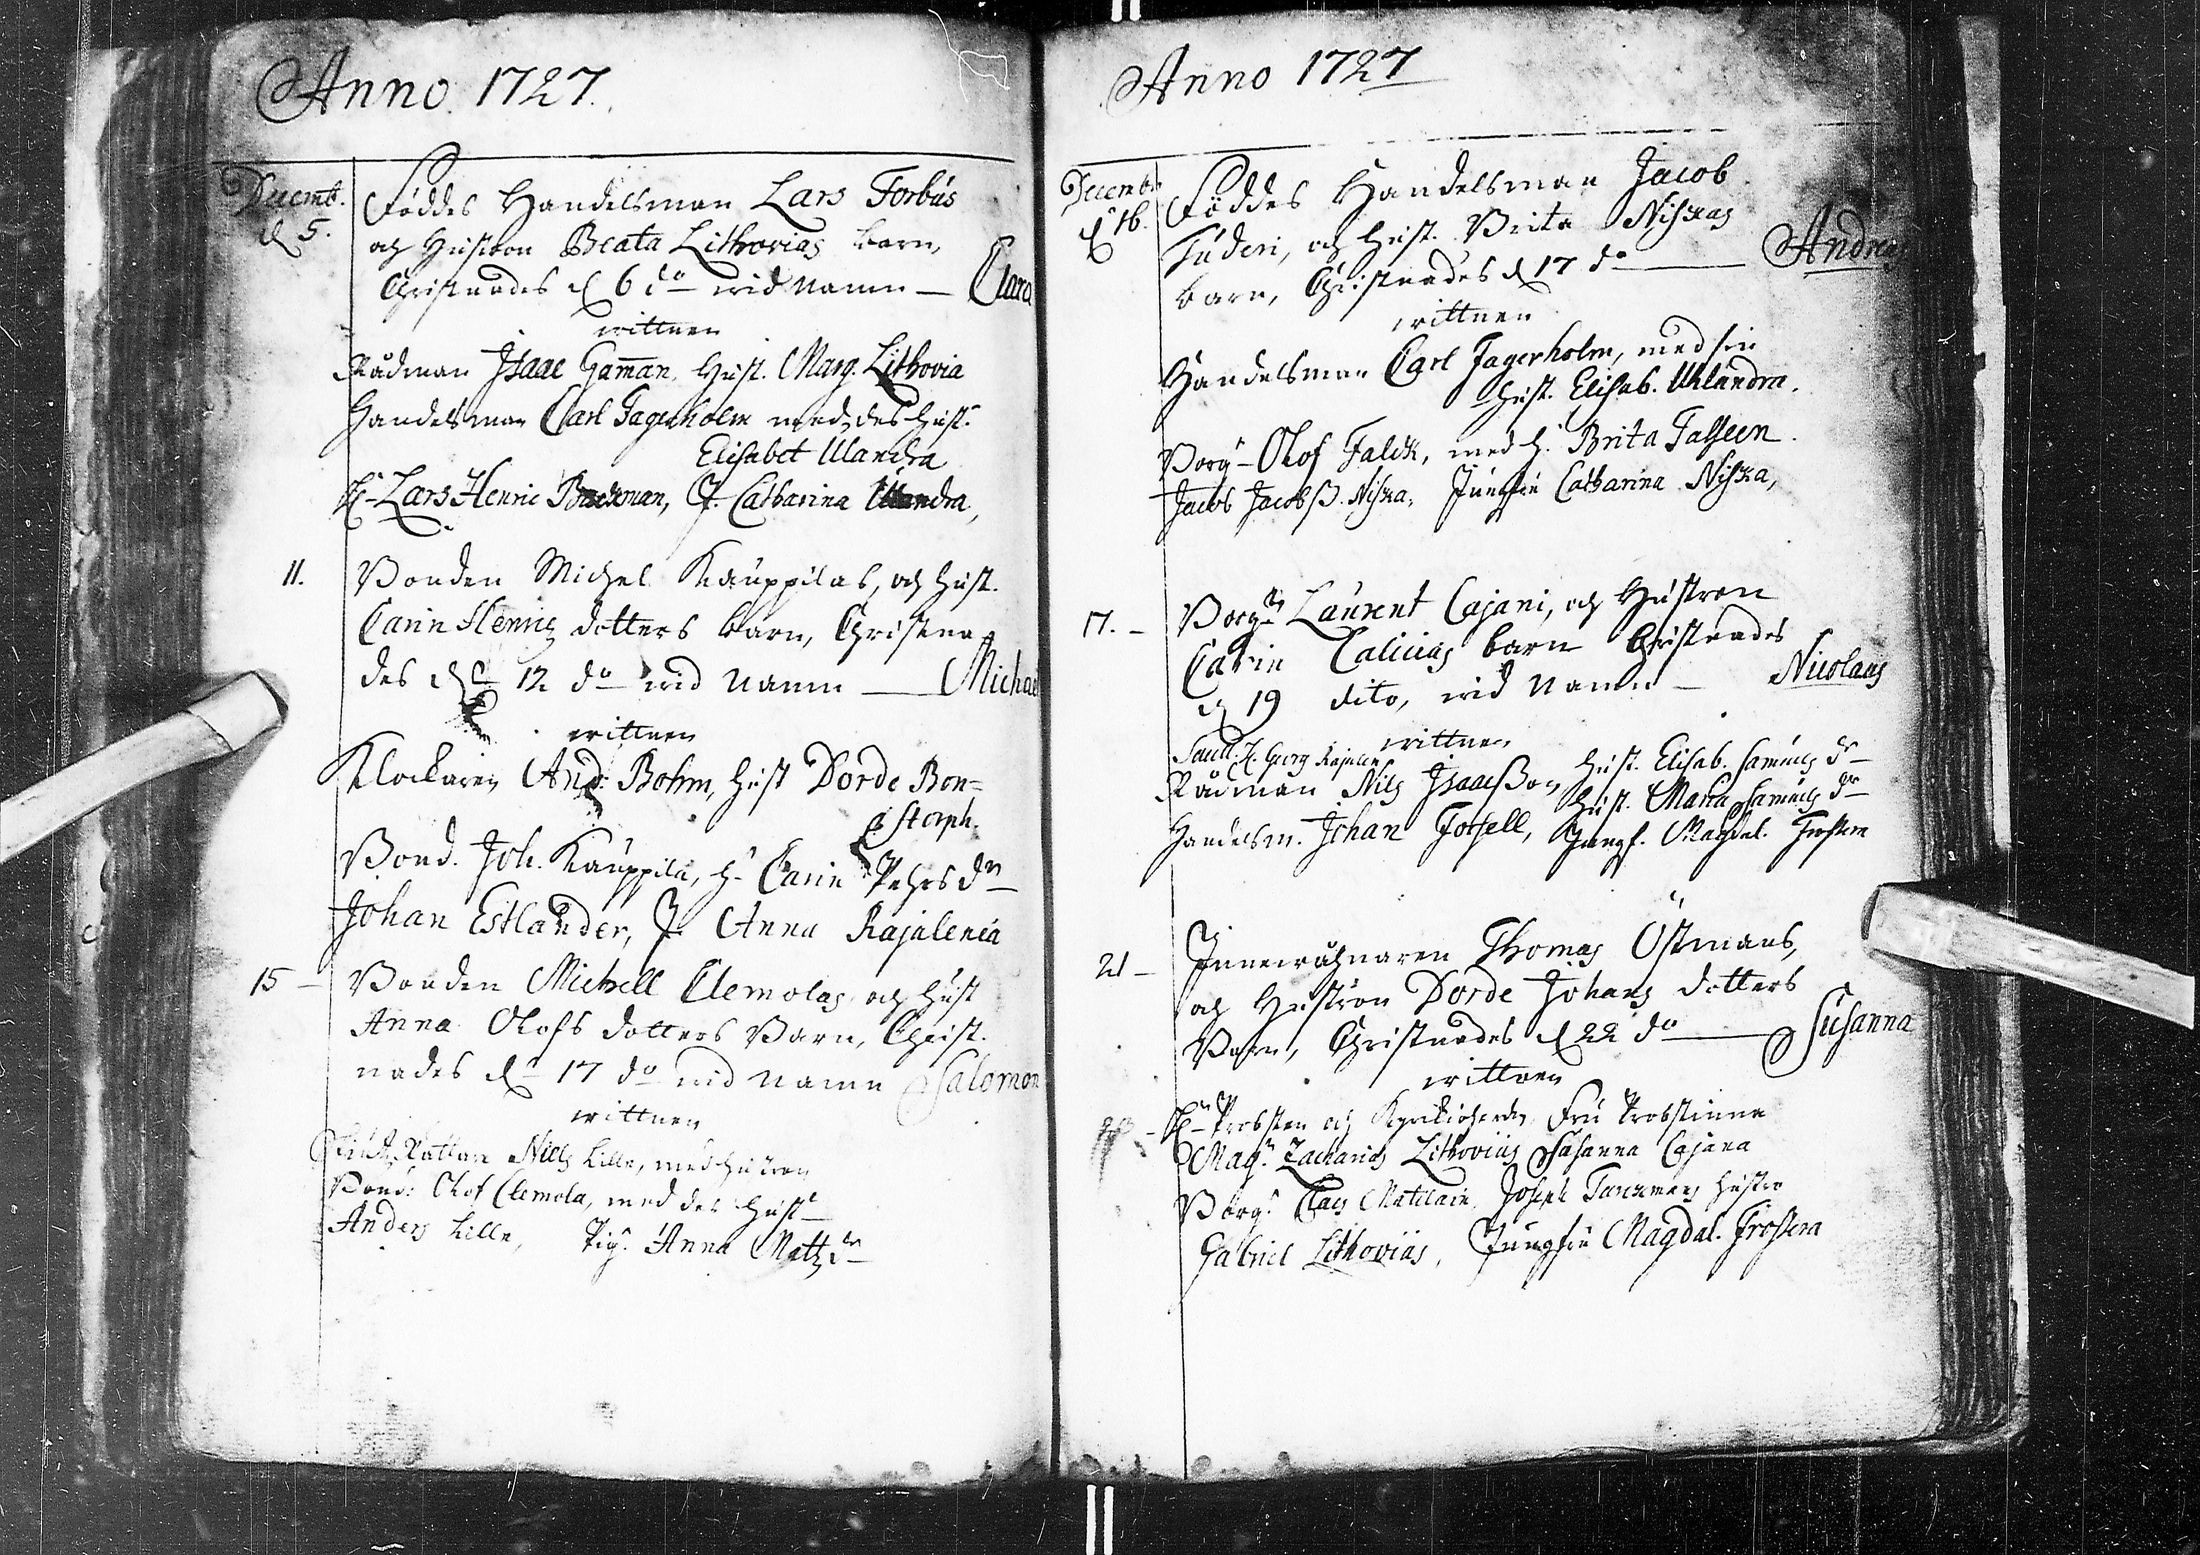 Anno 1727.
Decemb. d 5. Föddes Handelsman Lars Forbus
och Hustron Beata Lithovias barn,
Christnades d 6 do wid namn — Clara
wittnen
Rådman Isaac Gaman, Hust. Marg. Lithovia
Handelsman Carl Fagerholm med des Hust.
Elisabet Ulandra
H. Lars Henric Backman, J. Catharina Ulandra,
11. Bonden Michel Kauppilas, och Hust.
Carin Henrics dotters barn, Christna
des d 12 do wid namn — Michael
wittnen
Klockaren And: Bohm, Hust Dorde Bon=
gstorph.
Bond. Joh. Kauppila, H. Carin Pehrs dr
Johan Estlander, J. Anna Rajalenia
15 — Bonden Michell Clemolas och Hust
Anna Olofs dotters Barn, Christ.
nades d 17 do wid namn Salomon
wittnen
Niels Lille, med Hustron
Bond: Olof Clemola, med des Hust
Anders Lille, Pig. Anna Matz dr
Anno 1727
Decemb. d 16. Föddes Handelsman Jacob
Tuderi, och Hust. Brita Niskas
barn, Christnades d 17 do — Andreas
wittnen
Handelsman Carl Fagerholm, med sin
Hust. Elisab. Uhlandra.
Borg. Olof Falck, med h. Brita Falseen.
Jacob Jacobss. Niska, Jungfru Catharina Niska,
17. — Borg. Laurent Cajani, och Hustron
Carin Calicias barn Christnades
d 19 dito, wid namn — Nicolaus
wittnen
H. Georg Rajalen
Rådman Nils Isaacsson, Hust. Elisab. Samuels dr
Hust. Maria Samuels dr
Handelsm. Johan Forsell, Jungf. Magdal. Frostera
21 — Innewåhnaren Thomas Östmans,
och Hustron Dorde Johans dotters
Barn, Christnades d 22 do — Susanna
wittnen
H. Probsten och Kyrkioherden Fru Probstinna
Mag. Zacharias Lithovius Susanna Cajana
Borg. Claes Matilain, Joseph Tanckmans Hustru
Gabriel Lithovius, Jungfru Magdal. Frostera